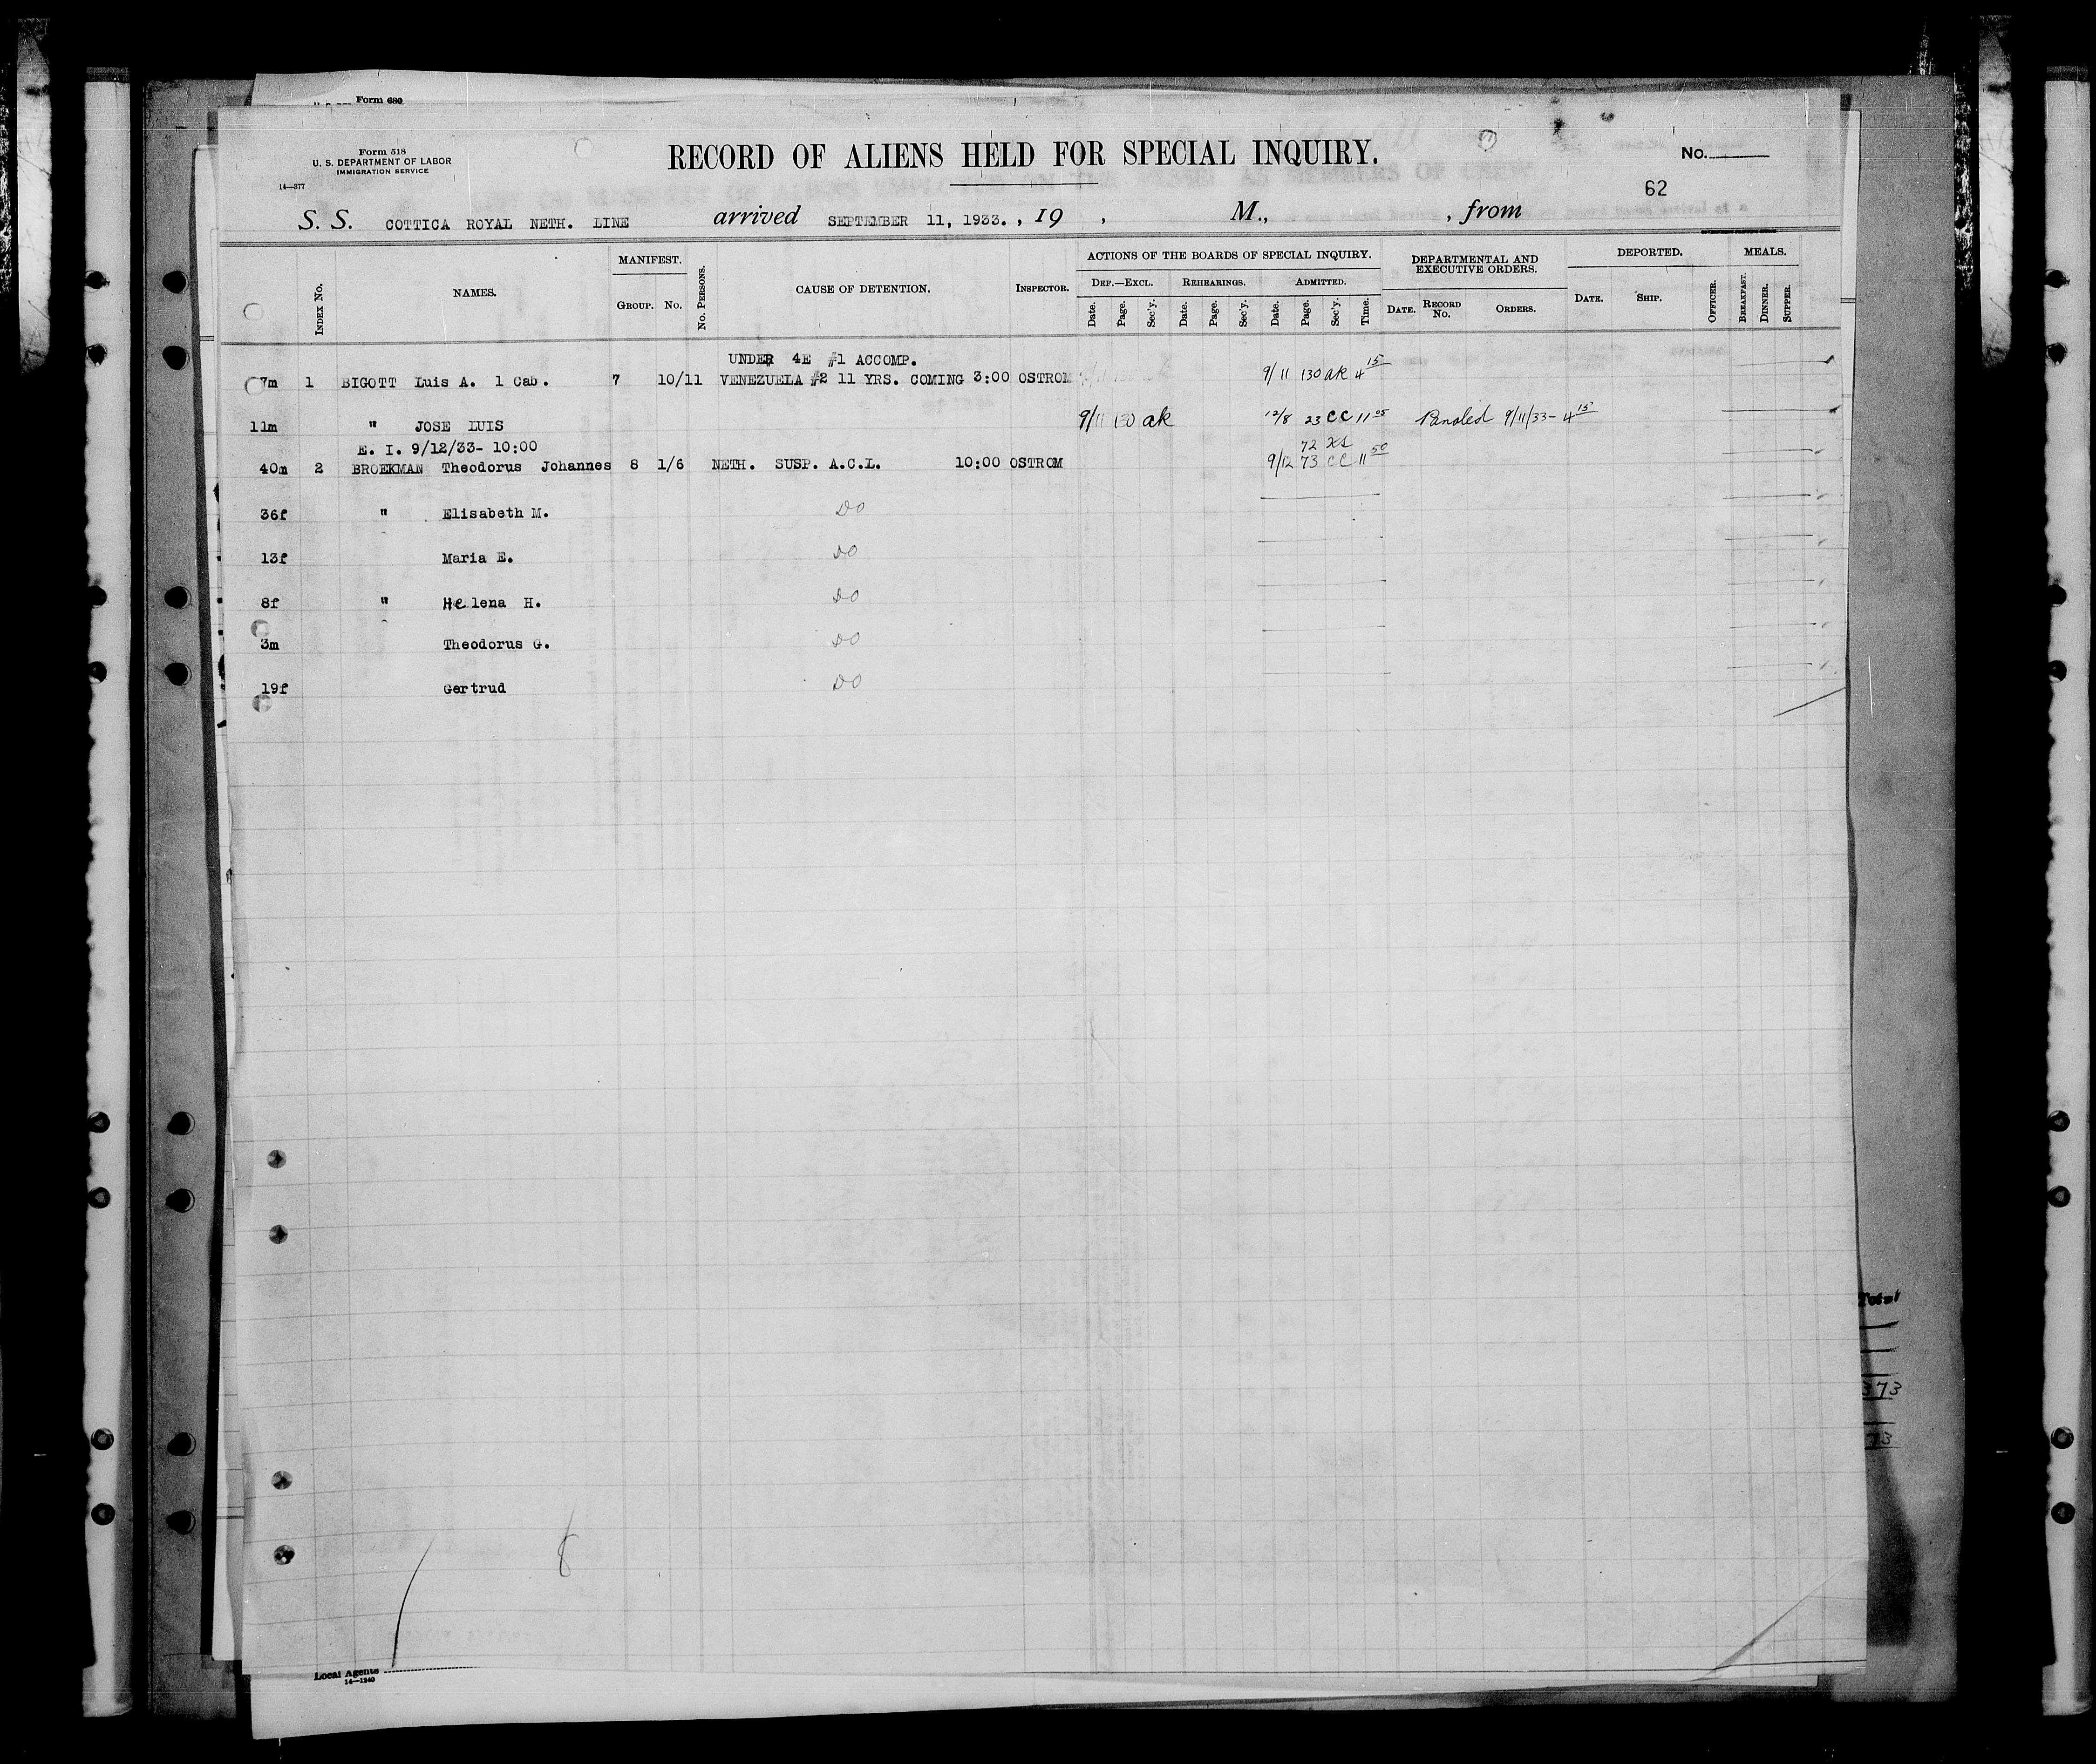 Form 680
Form 518
U. S. DEPARTMENT OF LABOR
IMMIGRATION SERVICE
14—377
RECORD OF ALIENS HELD FOR SPECIAL INQUIRY.
No.
62
S. S. COTTICA ROYAL NETH. LINE arrived SEPTEMBER 11, 1933. , 19 , M., , from
INDEX No. NAMES. MANIFEST. GROUP. No. No. PERSONS. CAUSE OF DETENTION. INSPECTOR. ACTIONS OF THE BOARDS OF SPECIAL INQUIRY. DEF.—EXCL. Date. Page. Sec'y. REHEARINGS. Date. Page. Sec'y. ADMITTED. Date. Page. Sec'y. Time. DEPARTMENTAL AND EXECUTIVE ORDERS. DATE. RECORD No. ORDERS. DEPORTED. DATE. SHIP. OFFICER. MEALS. BREAKFAST. DINNER. SUPPER.
UNDER 4E #1 ACCOMP.
7m 1 BIGOTT Luis A. 1 Cab. 7 10/11 VENEZUELA #2 11 YRS. COMING 3:00 OSTROM 9/11 130 ak 4 15
11m " JOSE LUIS 9/11 130 ak 12/8 23 CC 11 05 Paroled 9/11/33- 4 15
E. I. 9/12/33- 10:00 72
40m 2 BROEKMAN Theodorus Johannes 8 1/6 NETH. SUSP. A.C.L. 10:00 OSTROM 9/12 73 CC 11 50
36f " Elisabeth M. DO
13f Maria E. DO
8f " Helena H. DO
3m Theodorus G. DO
19f Gertrud DO
Total
373
73
8
Local Agents
14—1240